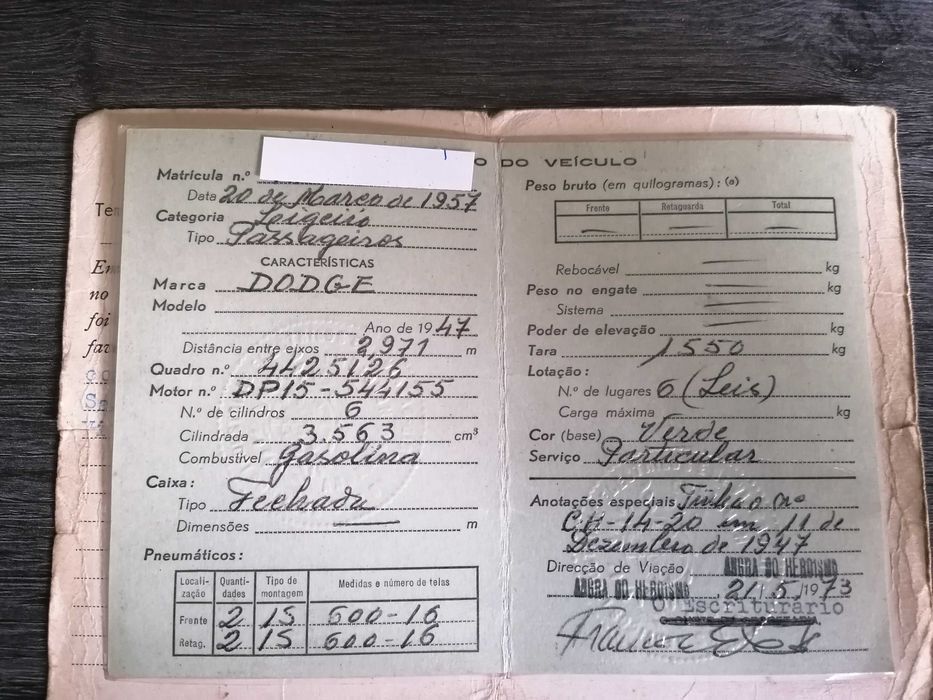 Ter
En
no
foi
fav
Matrícula n.º
Data 20 de Março de 1957
Categoria Ligeiro
Tipo Passageiros
CARACTERÍSTICAS
Marca DODGE
Modelo
Ano de 1947
Distância entre eixos 2,971 m
Quadro n.º 4425126
Motor n.º DP15-544155
N.º de cilindros 6
Cilindrada 3.563 cm³
Combustível Gasolina
Caixa:
Tipo Fechada
Dimensões m
Pneumáticos:
Locali-zação Quanti-dades Tipo de montagem Medidas e número de telas
Frente 2 15 600-16
Retag. 2 15 600-16
O DO VEÍCULO
Peso bruto (em quilogramas): (a)
Frente Retaguarda Total
Rebocável kg
Peso no engate kg
Sistema
Poder de elevação kg
Tara 1550 kg
Lotação:
N.º de lugares 6 (Seis)
Carga máxima kg
Cor (base) Verde
Serviço Particular
Anotações especiais Tinha o nº
CH-14-20 em 11 de
Dezembro de 1947
Direcção de Viação ANGRA DO HEROÍSMO
ANGRA DO HEROÍSMO 21/5/1973
O Escriturário